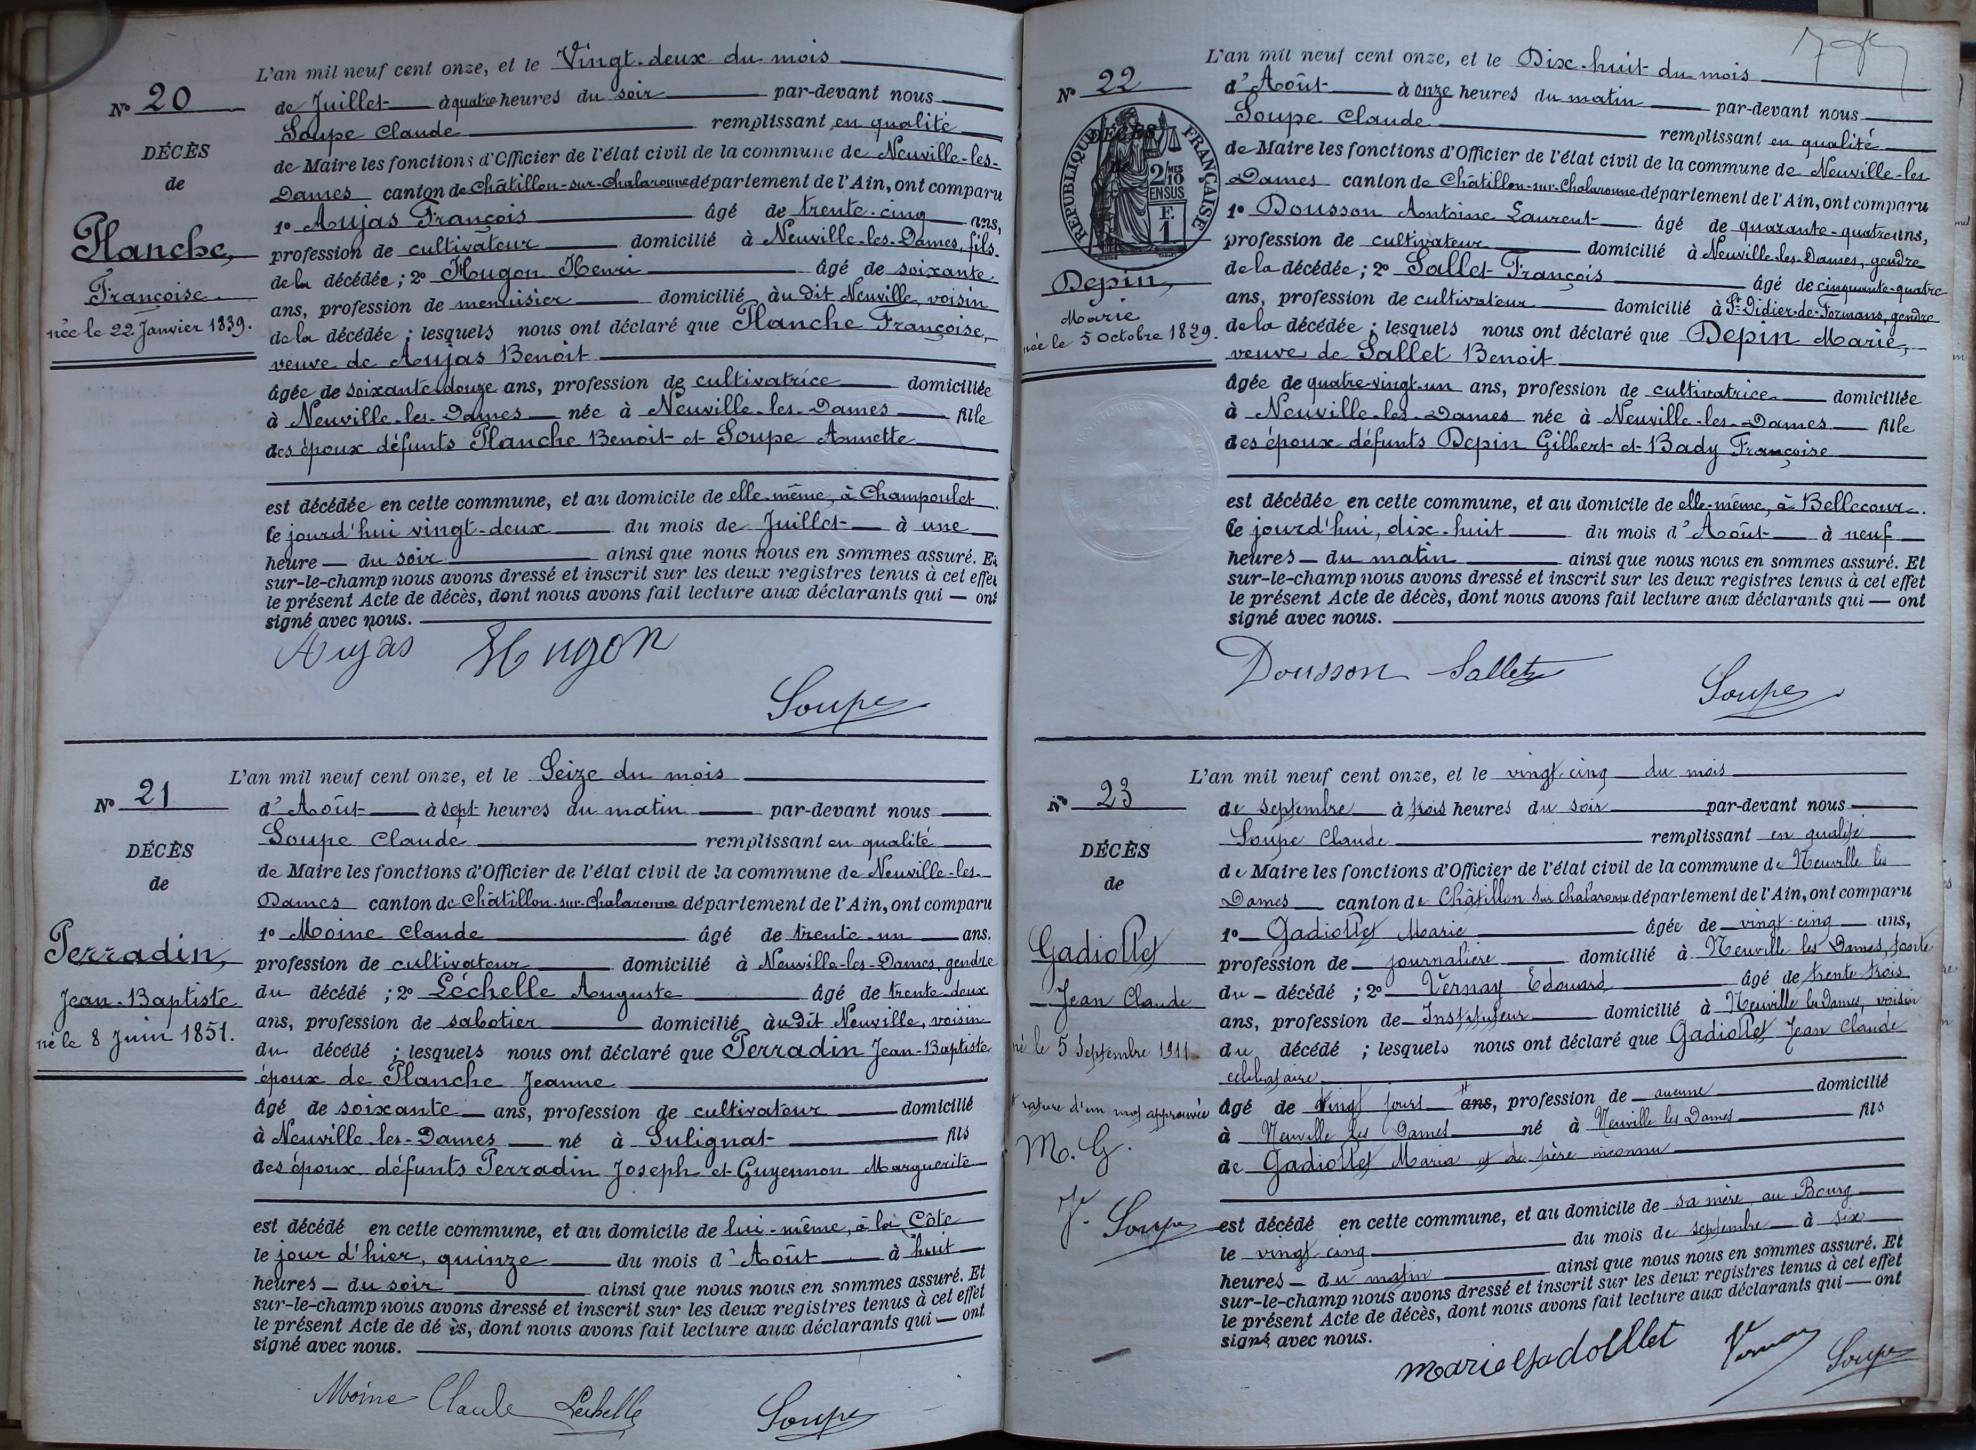 Nº 20
DÉCÈS
de
Planche,
Françoise
née le 22 Janvier 1839.
L'an mil neuf cent onze, et le Vingt-deux du mois
de Juillet à quatre heures du soir par-devant nous
Soupe Claude remplissant en qualité
de Maire les fonctions d'Officier de l'état civil de la commune de Neuville-les-
Dames canton de Châtillon-sur-Chalaronne département de l'Ain, ont comparu
1º Aujas François âgé de trente-cinq ans,
profession de cultivateur domicilié à Neuville-les-Dames, fils
de la décédée ; 2º Hugon Henri âgé de soixante
ans, profession de menuisier domicilié au dit Neuville, voisin
de la décédée ; lesquels nous ont déclaré que Planche Françoise,
veuve de Aujas Benoit
âgée de soixante-douze ans, profession de cultivatrice domiciliée
à Neuville-les-Dames née à Neuville-les-Dames fille
des époux défunts Planche Benoit et Soupe Annette
est décédée en cette commune, et au domicile de elle-même, à Champoulet
ce jourd'hui vingt-deux du mois de Juillet à une
heure du soir ainsi que nous nous en sommes assuré. Et
sur-le-champ nous avons dressé et inscrit sur les deux registres tenus à cet effet
le présent Acte de décès, dont nous avons fait lecture aux déclarants qui ont
signé avec nous.
Aujas Hugon
Soupe
Nº 21
DÉCÈS
de
Perradin,
Jean-Baptiste
né le 8 Juin 1851.
L'an mil neuf cent onze, et le Seize du mois
d'Août à sept heures du matin par-devant nous
Soupe Claude remplissant en qualité
de Maire les fonctions d'Officier de l'état civil de la commune de Neuville-les-
Dames canton de Châtillon-sur-Chalaronne département de l'Ain, ont comparu
1º Moine Claude âgé de trente-un ans.
profession de cultivateur domicilié à Neuville-les-Dames, gendre
du décédé ; 2º Léchelle Auguste âgé de trente-deux
ans, profession de sabotier domicilié audit Neuville, voisin
du décédé ; lesquels nous ont déclaré que Perradin Jean-Baptiste
époux de Planche Jeanne
âgé de soixante ans, profession de cultivateur domicilié
à Neuville-les-Dames né à Sulignat fils
des époux défunts Perradin Joseph et Guyennon Marguerite
est décédé en cette commune, et au domicile de lui-même, à la Côte
le jour d'hier, quinze du mois d'Août à huit
heures du soir ainsi que nous nous en sommes assuré. Et
sur-le-champ nous avons dressé et inscrit sur les deux registres tenus à cet effet
le présent Acte de dé ès, dont nous avons fait lecture aux déclarants qui ont
signé avec nous.
Moine Claude Lechelle
Soupe
Nº 22
DÉCÈS
RÉPUBLIQUE FRANÇAISE
2/10 MES
EN SUS
F.
1
Depin,
Marie
née le 5 Octobre 1829.
L'an mil neuf cent onze, et le Dix-huit du mois
d'Août à onze heures du matin par-devant nous
Soupe Claude remplissant en qualité
de Maire les fonctions d'Officier de l'état civil de la commune de Neuville-les
Dames canton de Châtillon-sur-Chalaronne département de l'Ain, ont comparu
1º Dousson Antoine Laurent âgé de quarante-quatre ans,
profession de cultivateur domicilié à Neuville-les-Dames, gendre
de la décédée ; 2º Sallet François âgé de cinquante-quatre
ans, profession de cultivateur domicilié à St Didier-de-Formans, gendre
de la décédée ; lesquels nous ont déclaré que Depin Marie,
veuve de Sallet Benoit
âgée de quatre-vingt-un ans, profession de cultivatrice domiciliée
à Neuville-les-Dames née à Neuville-les-Dames fille
des époux défunts Depin Gilbert et Bady Françoise
est décédée en cette commune, et au domicile de elle-même, à Bellecour.
ce jourd'hui, dix-huit du mois d'Août à neuf
heures du matin ainsi que nous nous en sommes assuré. Et
sur-le-champ nous avons dressé et inscrit sur les deux registres tenus à cet effet
le présent Acte de décès, dont nous avons fait lecture aux déclarants qui ont
signé avec nous.
Dousson Sallet
Soupe
Nº 23
DÉCÈS
de
Gadiollet
Jean Claude
né le 5 Septembre 1911
rature d'un mot approuvée
M. G.
Soupe
L'an mil neuf cent onze, et le vingt-cinq du mois
de septembre à trois heures du soir par-devant nous
Soupe Claude remplissant en qualité
de Maire les fonctions d'Officier de l'état civil de la commune de Neuville les
Dames canton de Châtillon sur Chalaronne département de l'Ain, ont comparu
1º Gadiollet Marie âgée de vingt-cinq ans,
profession de journalière domicilié à Neuville les Dames,
du décédé ; 2º Vernay Edouard âgé de trente trois
ans, profession de Instituteur domicilié à Neuville les Dames, voisin
du décédé ; lesquels nous ont déclaré que Gadiollet Jean Claude
célibataire
âgé de vingt jours ans, profession de aucune domicilié
à Neuville les Dames né à Neuville les Dames fils
de Gadiollet Maria et de père inconnu
est décédé en cette commune, et au domicile de sa mère, au Bourg
le vingt cinq du mois de septembre à six
heures du matin ainsi que nous nous en sommes assuré. Et
sur-le-champ nous avons dressé et inscrit sur les deux registres tenus à cet effet
le présent Acte de décès, dont nous avons fait lecture aux déclarants qui ont
signé avec nous.
Marie Gadolllet Vernay Soupe